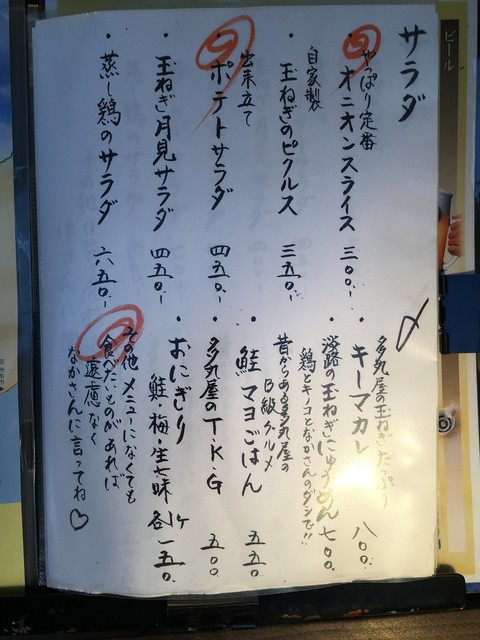 サラダ
やっぱり定番
・オニオンスライス 三〇〇.-
自家製
・玉ねぎのピクルス 三五〇.-
出来立て
・ポテトサラダ 四五〇.-
・玉ねぎ月見サラダ 四五〇.-
・蒸し鶏のサラダ 六五〇.-
〆
多丸屋の玉ねぎたっぷり
・キーマカレー 八〇〇.
・淡路の玉ねぎにゅうめん 七〇〇.
鶏とキノコとなかさんのダシで!!
昔からある多丸屋の
B級グルメ
・鮭マヨごはん 五五〇.
・多丸屋のT.K.G 五〇〇.
・おにぎり
鮭・梅・生七味 各1ケ 一五〇.
その他 メニューになくても
食べたいものがあれば
遠慮なく
なかさんに言ってね♡
ビール